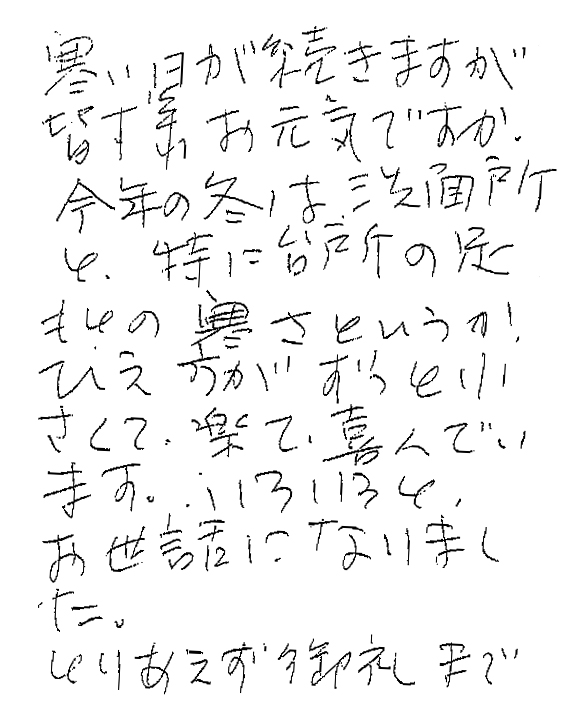 寒い日が続きますが
皆す業お元気ですか、
今年の冬は、洗面所
と、特に台所の足
もとの寒さというか!
ひえ方がずっと小
さくて、楽で、喜んでい
ます。いろいろと、
お世話になりまし
た。
とりあえず御礼まで